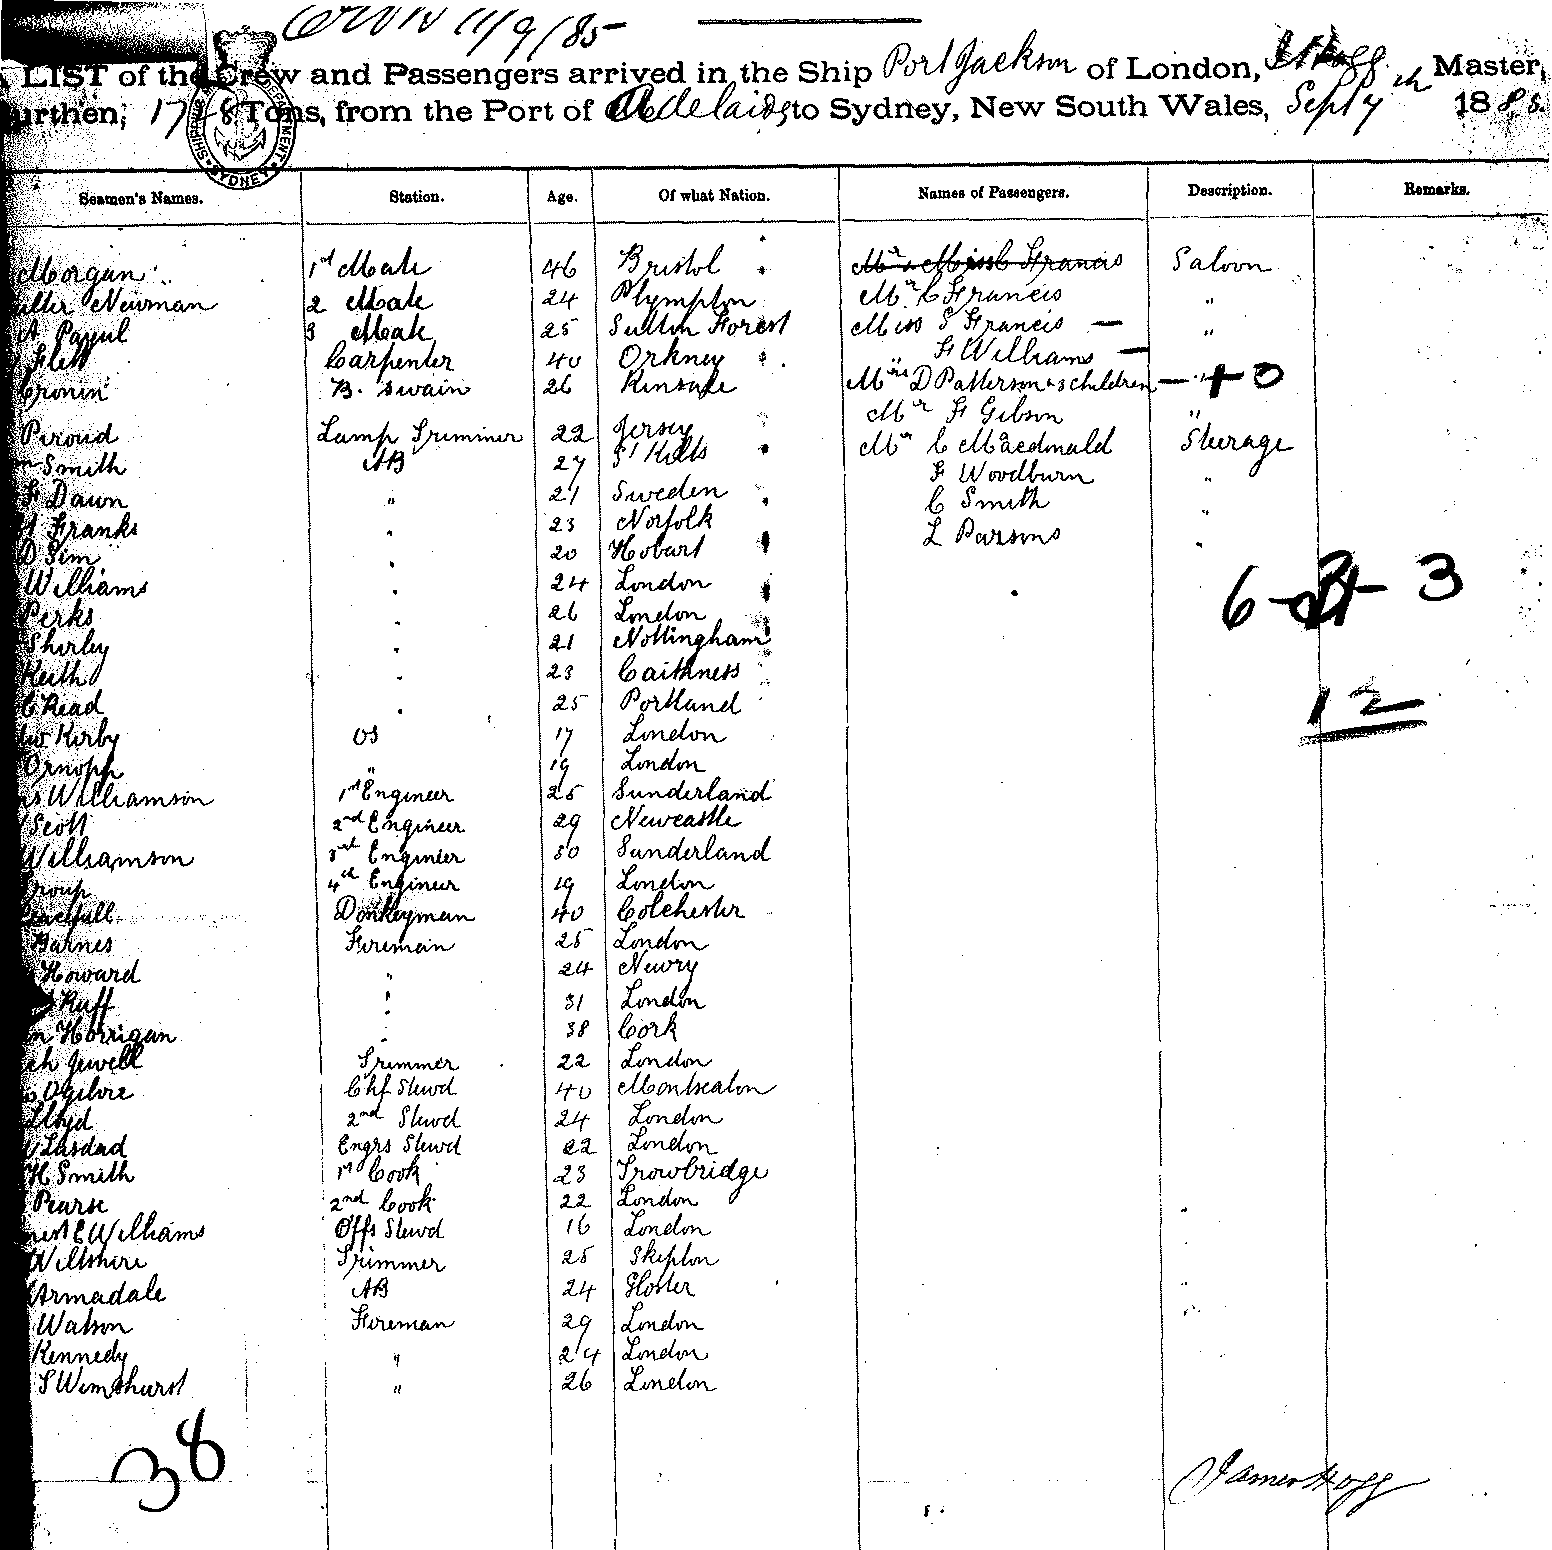 11/9/85
LIST of the Crew and Passengers arrived in the Ship Port Jackson of London, J Hogg Master,
urthen, 1748 Tons, from the Port of Adelaide to Sydney, New South Wales, Sept 7th 1885
SHIPPING DEPARTMENT SYDNEY
Seamen's Names. Station. Age. Of what Nation. Names of Passengers. Description. Remarks.
Morgan 1st Mate 46 Bristol Mr & Miss C Francis Saloon
Newman 2 Mate 24 Plympton Mr C Francis "
A 3 Mate 25 Sutton Forest Miss S Francis — "
Flett Carpenter 40 Orkney F Williams —
Cronin B. Swain 26 Kinsale Mrs D Patterson & 3 children — + 0
Mr F Gibson "
Piroud Lamp Trimmer 22 Jersey Mr C Macdonald Steerage
Smith AB 27 St Kitts F Woodburn "
F Dawn " 21 Sweden C Smith "
Franks " 23 Norfolk L Parsons "
D Sim " 20 Hobart
Williams " 24 London 6 3
Perks " 26 London
Shirley " 21 Nottingham
Keith " 23 Caithness
C Read " 25 Portland 12
Kirby OS 17 London
Ornopp " 19 London
Williamson 1st Engineer 25 Sunderland
Scott 2nd Engineer 29 Newcastle
Williamson 3rd Engineer 30 Sunderland
roup 4th Engineer 19 London
Donkeyman 40 Colchester
Barnes Fireman 25 London
Howard " 24 Newry
Ruff " 31 London
n Horrigan " 38 Cork
ph Jewell Trimmer 22 London
Ogilvie Chf Stewd 40
Lloyd 2nd Stewd 24 London
Lasdad Engrs Stewd 22 London
H Smith 1st Cook 23 Trowbridge
Pearse 2nd Cook 22 London
nest E Williams Offs Stewd 16 London
Wiltshire Trimmer 25 Skepton
Armadale AB 24 Gloster
Watson Fireman 29 London
Kennedy " 24 London
S Wimshurst " 26 London
38
James Hogg